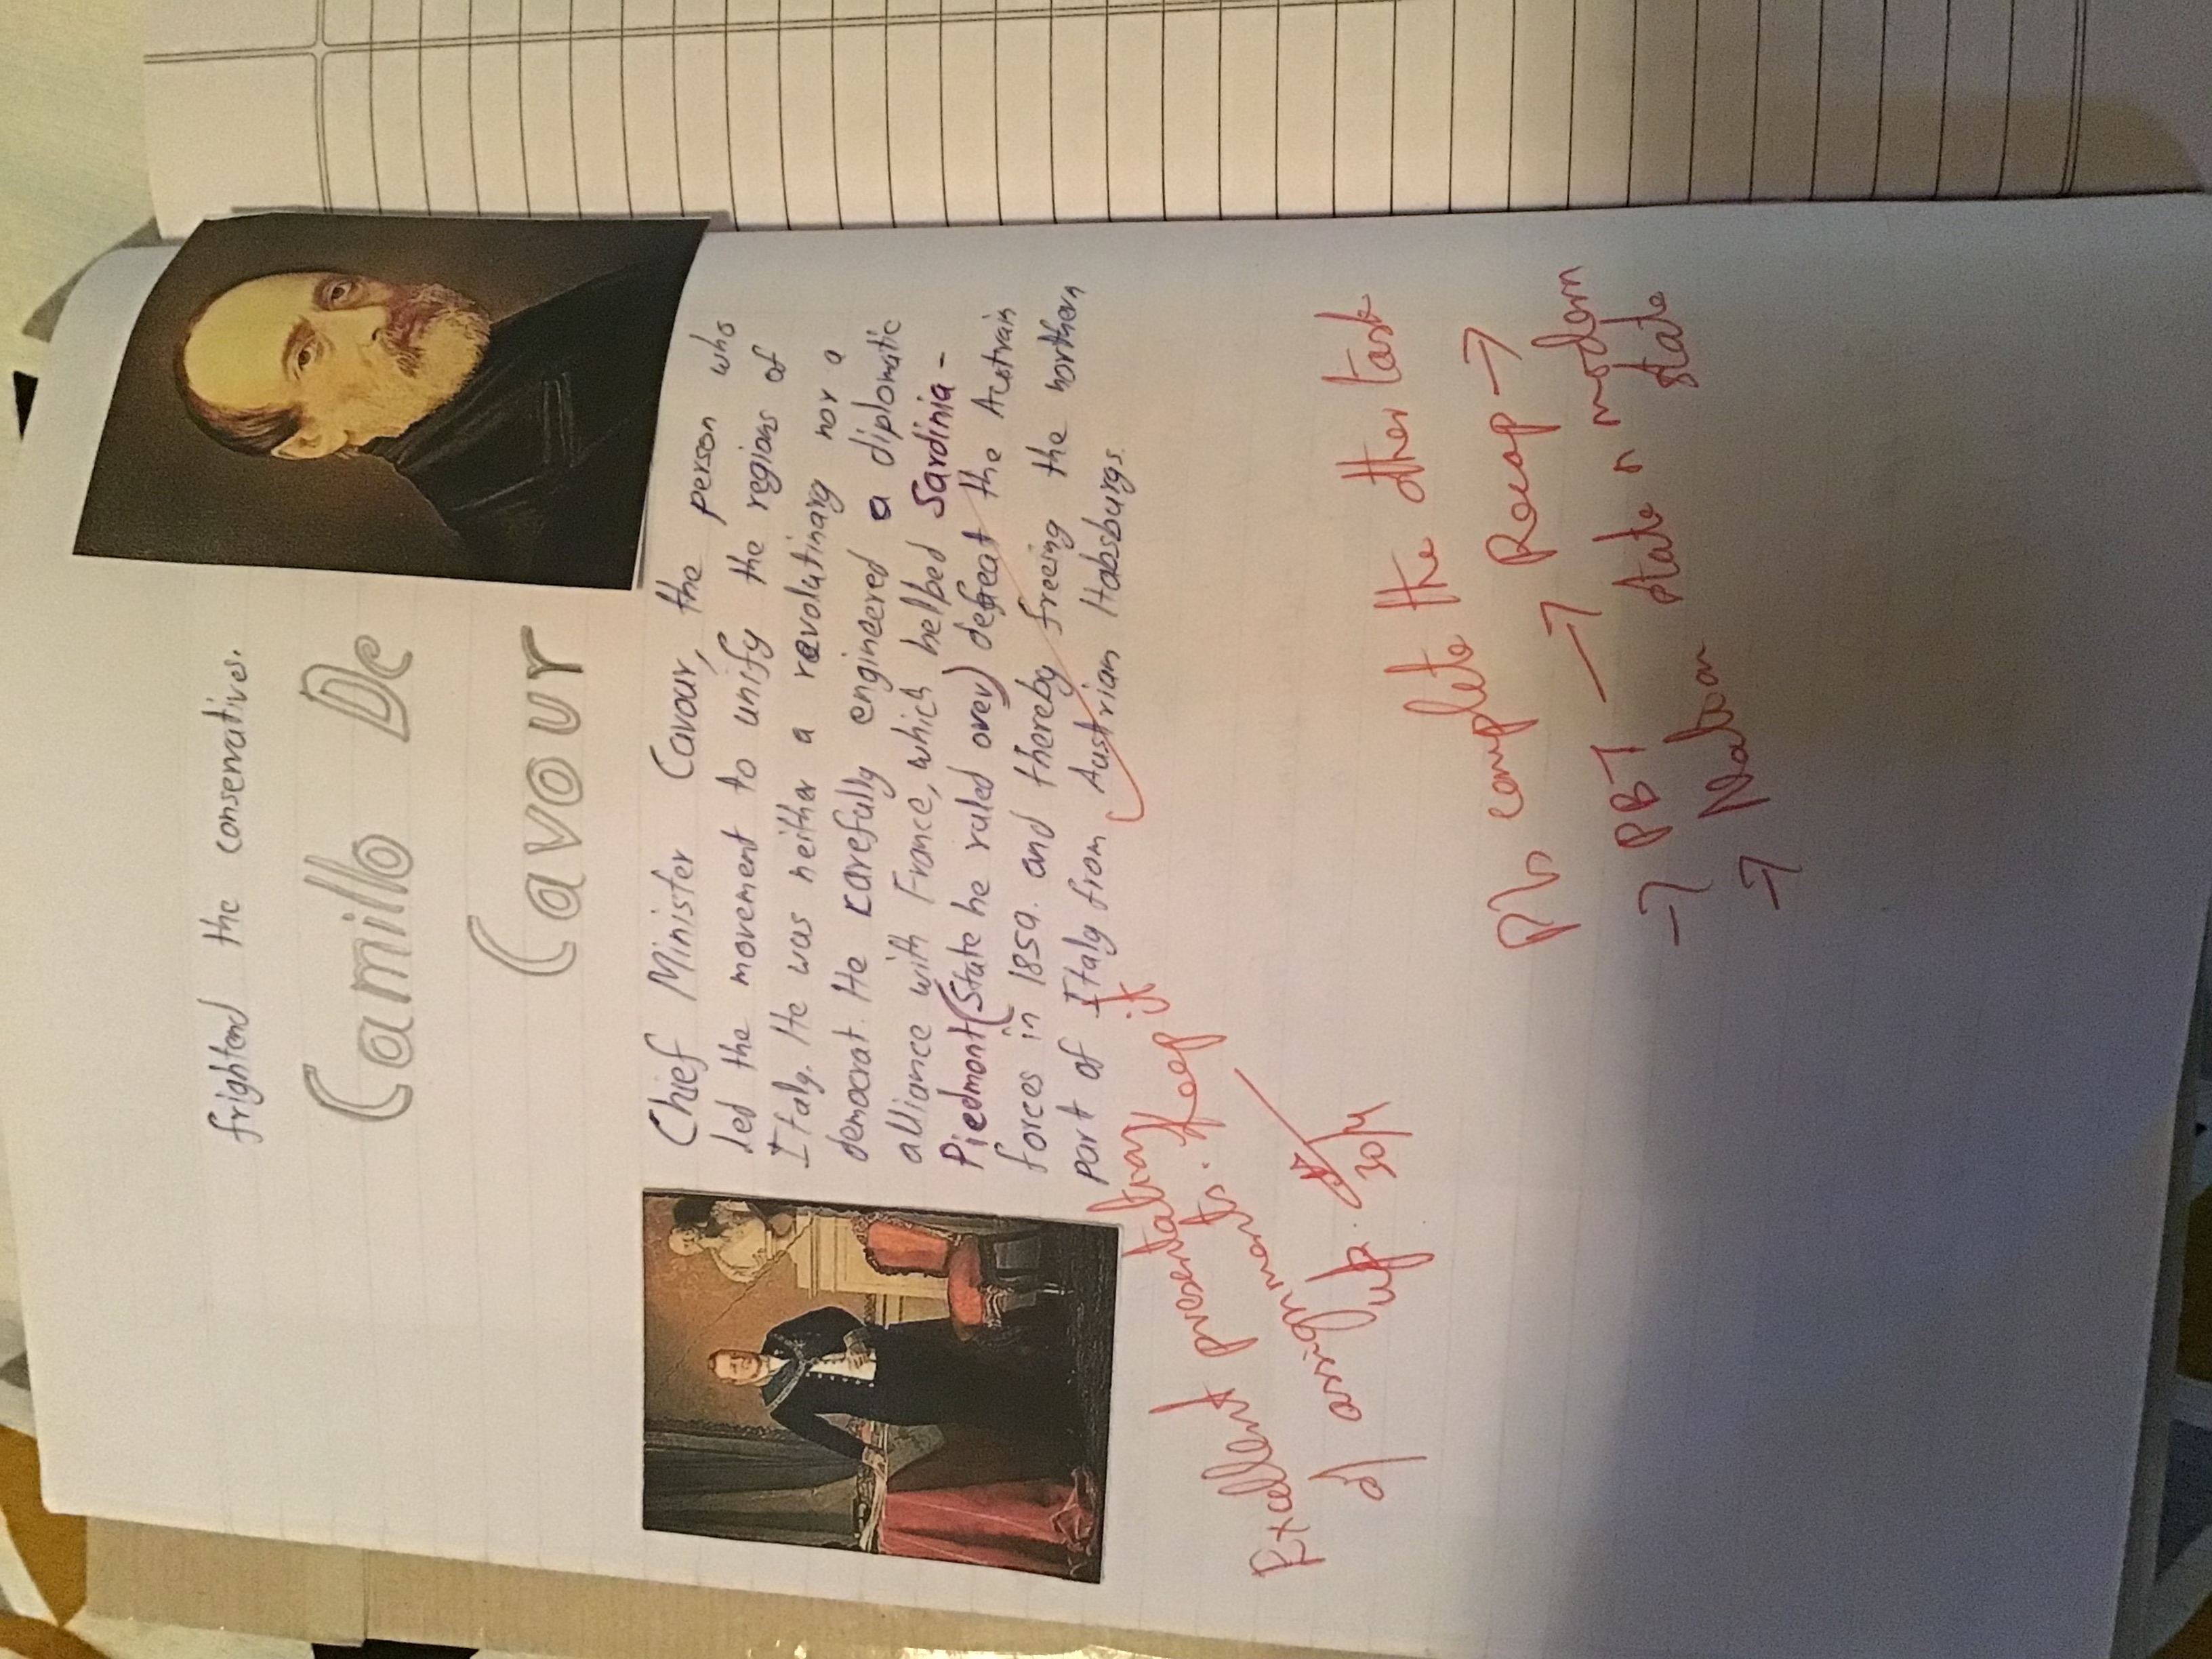 frightend the conservatives.
Camillo De
Cavour
Chief Minister Cavour, the person who
led the movement to unify the regions of
Italy. He was neither a revolutinary nor a
democrat. He carefully engineered a diplomatic
alliance with France, which helbed Sardinia-
Piedmont (State he ruled over) defeat the Austrain
forces in 1859. and thereby freeing the northern
part of Italy from Austrian Habsburgs.
Excellent presentation
of assignments. Keep it
up.
30/4
Pls complete the other task
→ PBT → Recap →
→ Nation state n modern
state